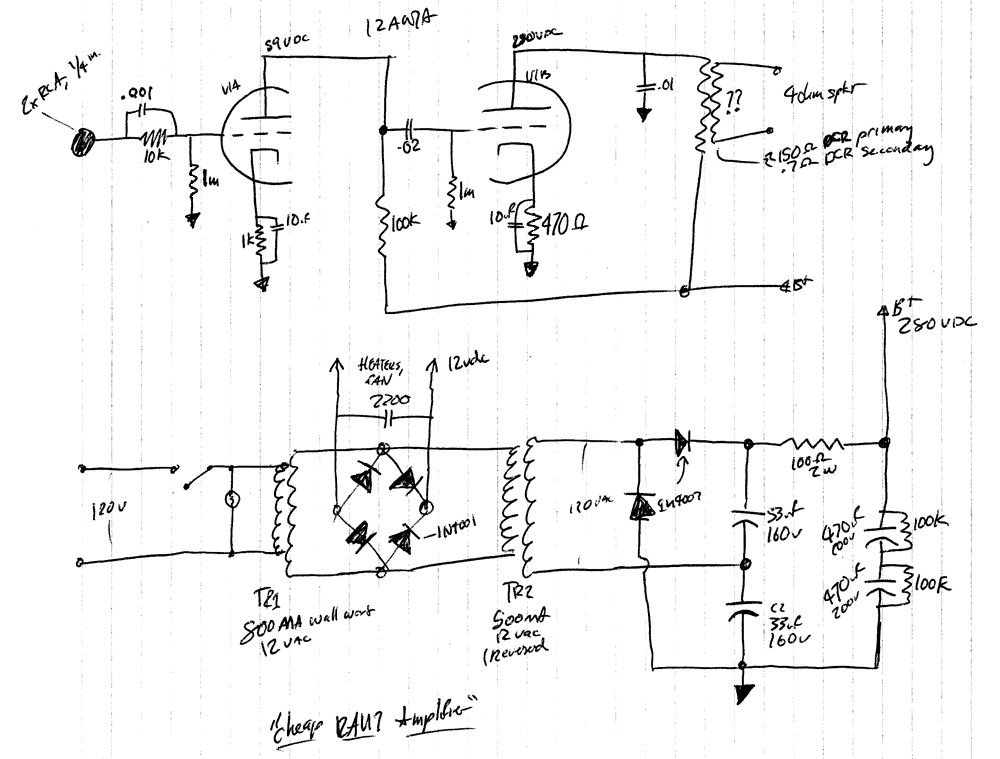 12AU7A
59VDC
280VDC
2x RCA, 1/4 in.
.001
V1A
V1B
.01
4 ohm spkr
??
10K
.02
≈150Ω DCR primary
.7Ω DCR secondary
1m
1m
10uF
1K
100K
10uF
470Ω
B+
B+
280VDC
HEATERS,
FAN
12vdc
2200
100Ω
2W
120v
120VAC
1N4007
1N4001
33uF
160v
470uF
200v
100K
470uF
200v
100K
C2
33uF
160v
TR1
800MA wall wart
12VAC
TR2
500mA
12vac
(Reversed
"Cheap RAH? Amplifier"